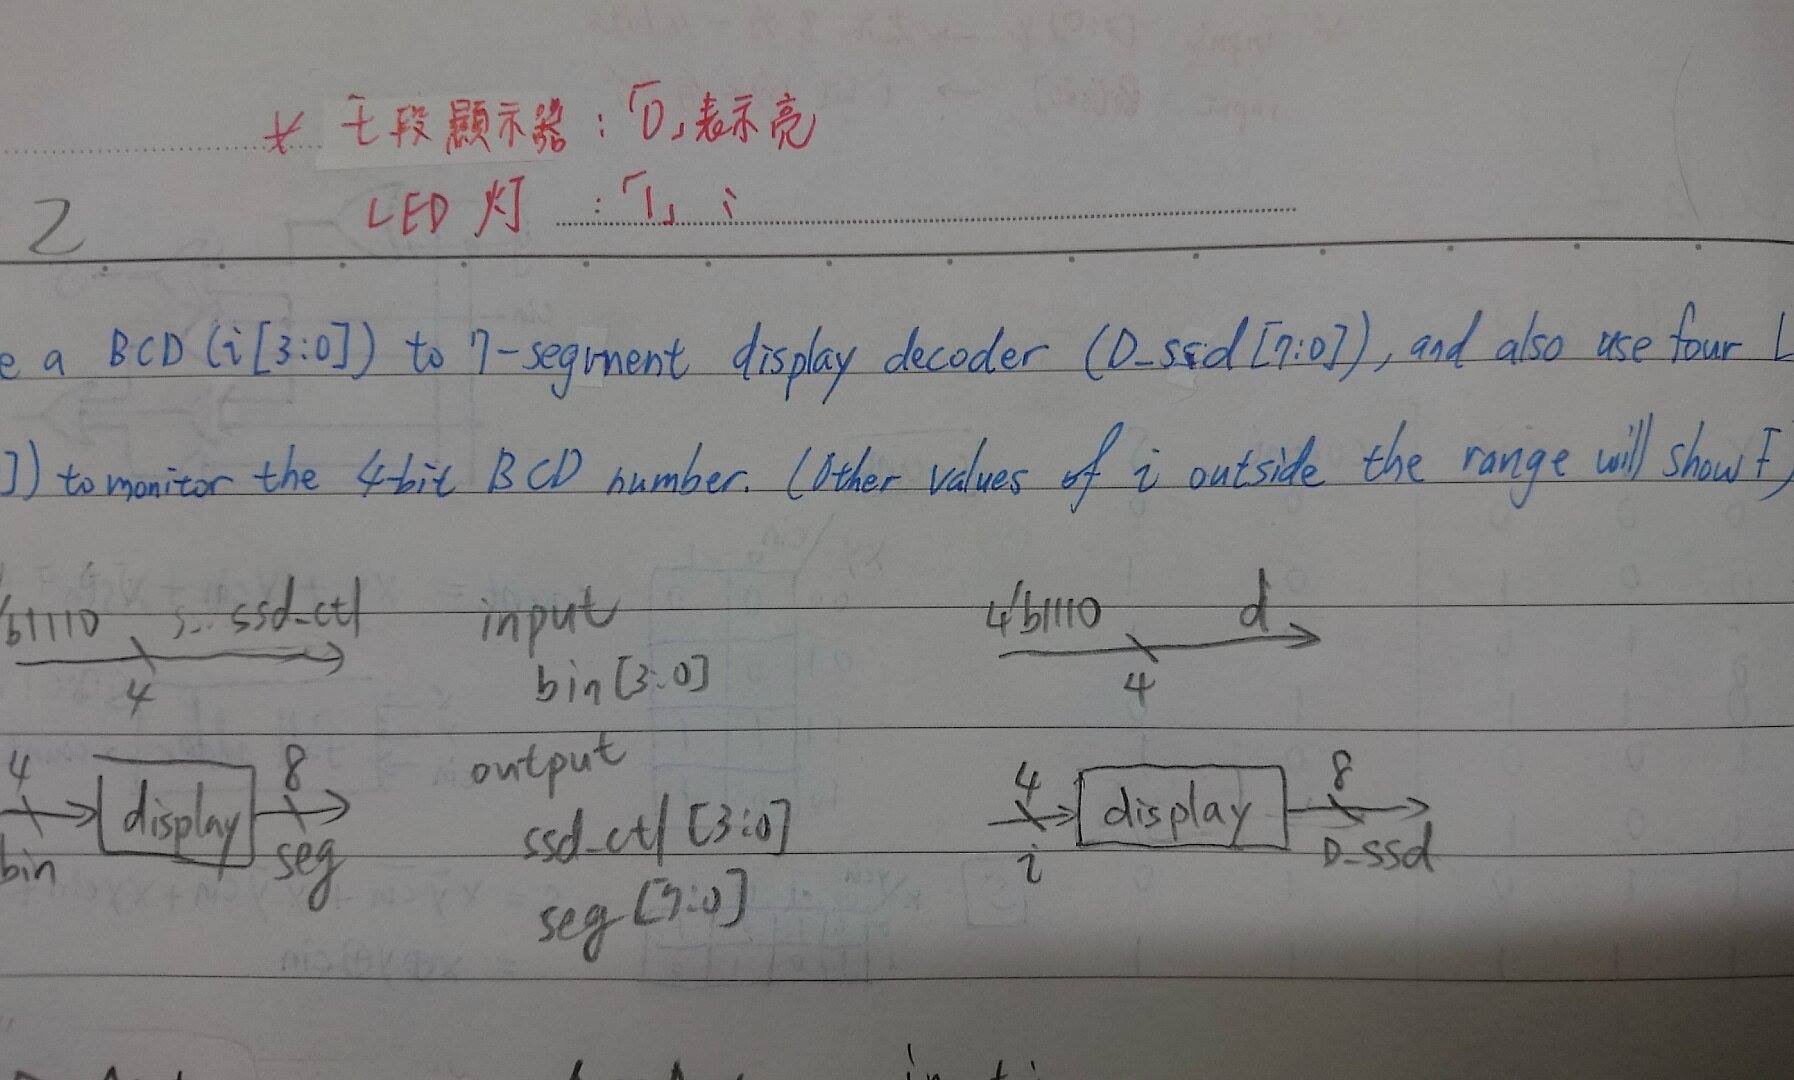 * 七段顯示器：「0」表示亮
LED 灯 ：「1」 〃
2
e a BCD (i[3:0]) to 7-segment display decoder (D_ssd[7:0]), and also use four L
]) to monitor the 4-bit BCD number. (Other values of i outside the range will show F)
'b1110 ssd_ctl
4
input
bin[3:0]
4'b1110 d
4
4 display 8
bin seg
output
ssd_ctl[3:0]
seg[7:0]
4 display 8
i D_ssd